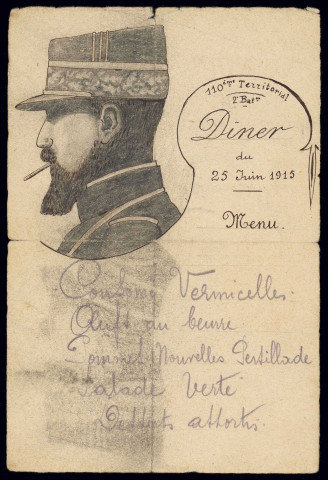 110ème Territorial
2e Batn
Dîner
du
25 Juin 1915
Menu.
Consomé Vermicelles.
Œufs au beurre.
Nouvelles
Salade Verte
Desserts assortis.